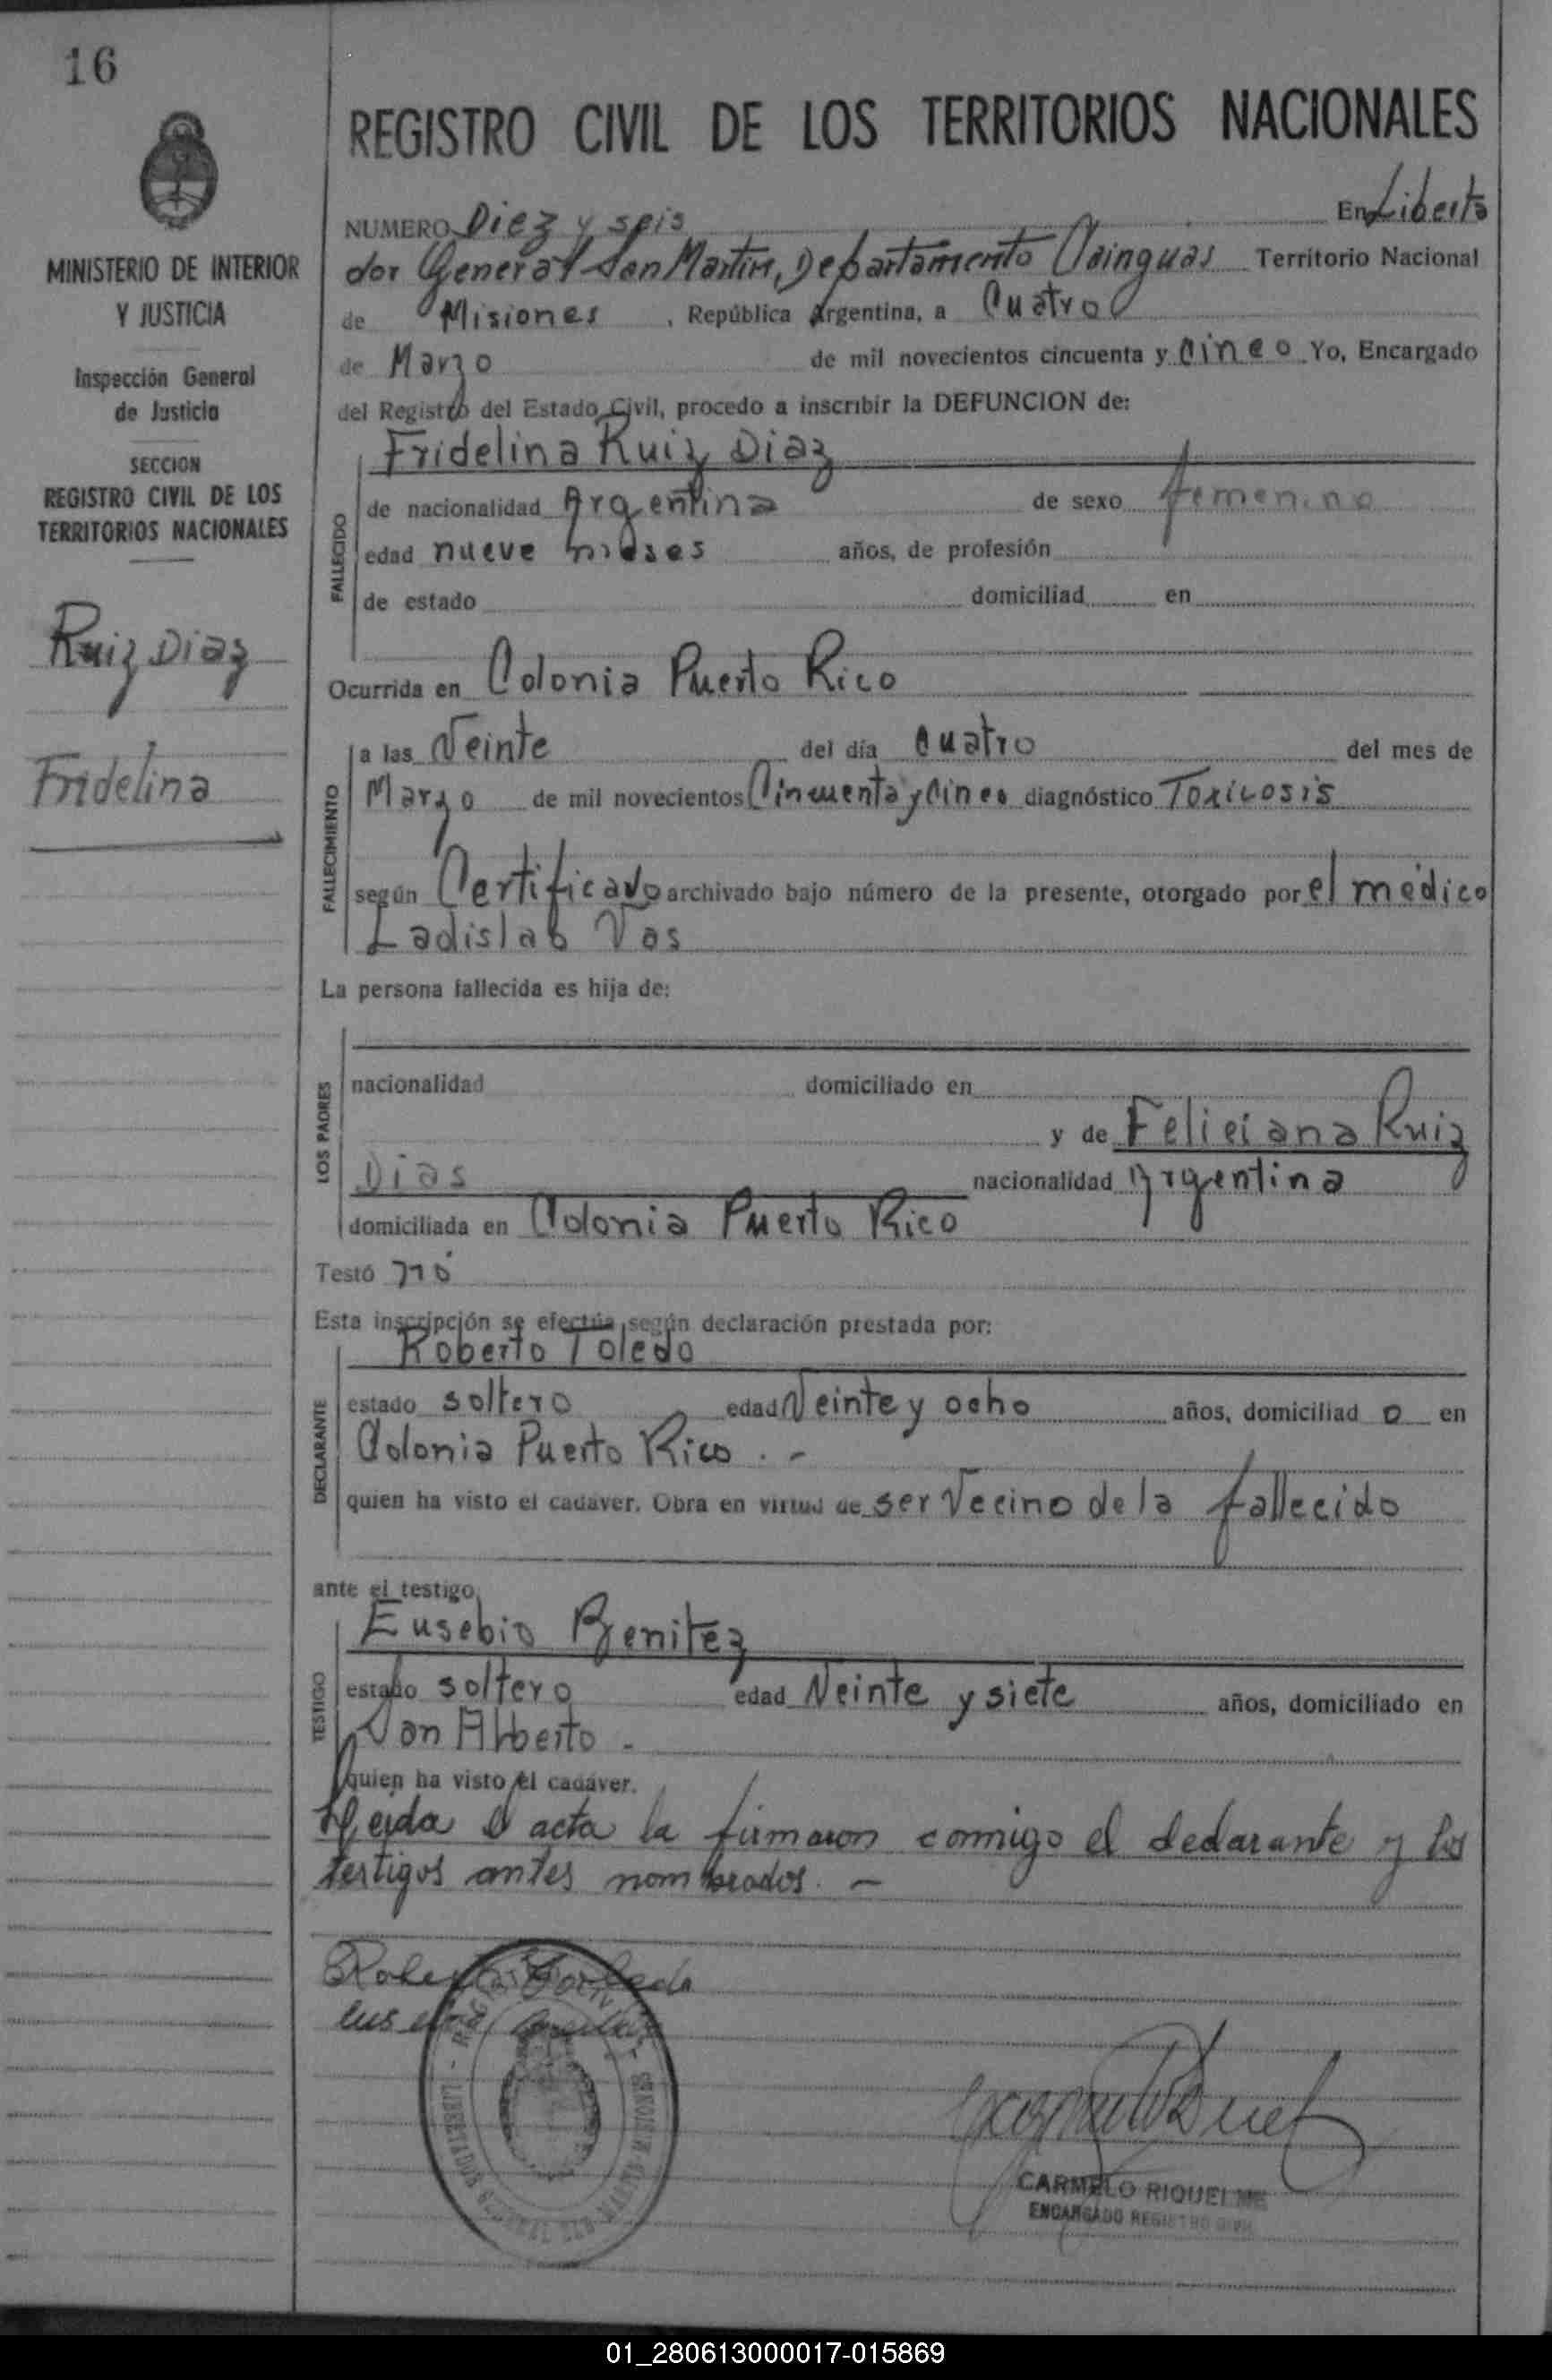 16
REGISTRO CIVIL DE LOS TERRITORIOS NACIONALES
MINISTERIO DE INTERIOR
Y JUSTICIA
Inspección General
de Justicia
SECCION
REGISTRO CIVIL DE LOS
TERRITORIOS NACIONALES
Ruiz Diaz
Fridelina
NUMERO Diez y seis En Liberta
dor General San Martin, Departamento Cainguas Territorio Nacional
de Misiones, República Argentina, a Cuatro
de Marzo de mil novecientos cincuenta y cinco Yo, Encargado
del Registro del Estado Civil, procedo a inscribir la DEFUNCION de:
FALLECIDO
Fridelina Ruiz Diaz
de nacionalidad Argentina de sexo femenino
edad nueve meses años, de profesión
de estado domiciliad en
Ocurrida en Colonia Puerto Rico
FALLECIMIENTO
a las Veinte del día cuatro del mes de
Marzo de mil novecientos Cincuenta y Cinco diagnóstico Toxicosis
según Certificado archivado bajo número de la presente, otorgado por el médico
Ladislab Vas
La persona fallecida es hija de:
LOS PADRES
nacionalidad domiciliado en
y de Feliciana Ruiz
Dias nacionalidad Argentina
domiciliada en Colonia Puerto Rico
Testó no
Esta inscripción se efectúa según declaración prestada por:
DECLARANTE
Roberto Toledo
estado soltero edad Veinte y ocho años, domiciliad o en
Colonia Puerto Rico . -
quien ha visto el cadáver. Obra en virtud de ser Vecino de la fallecido
ante el testigo
TESTIGO
Eusebio Benitez
estado soltero edad Veinte y siete años, domiciliado en
San Alberto -
quien ha visto el cadáver.
Leida el acta la firmaron conmigo el declarante y los
testigos antes nombrados. -
CARMELO RIQUELME
ENCARGADO REGISTRO CIVIL
01_280613000017-015869